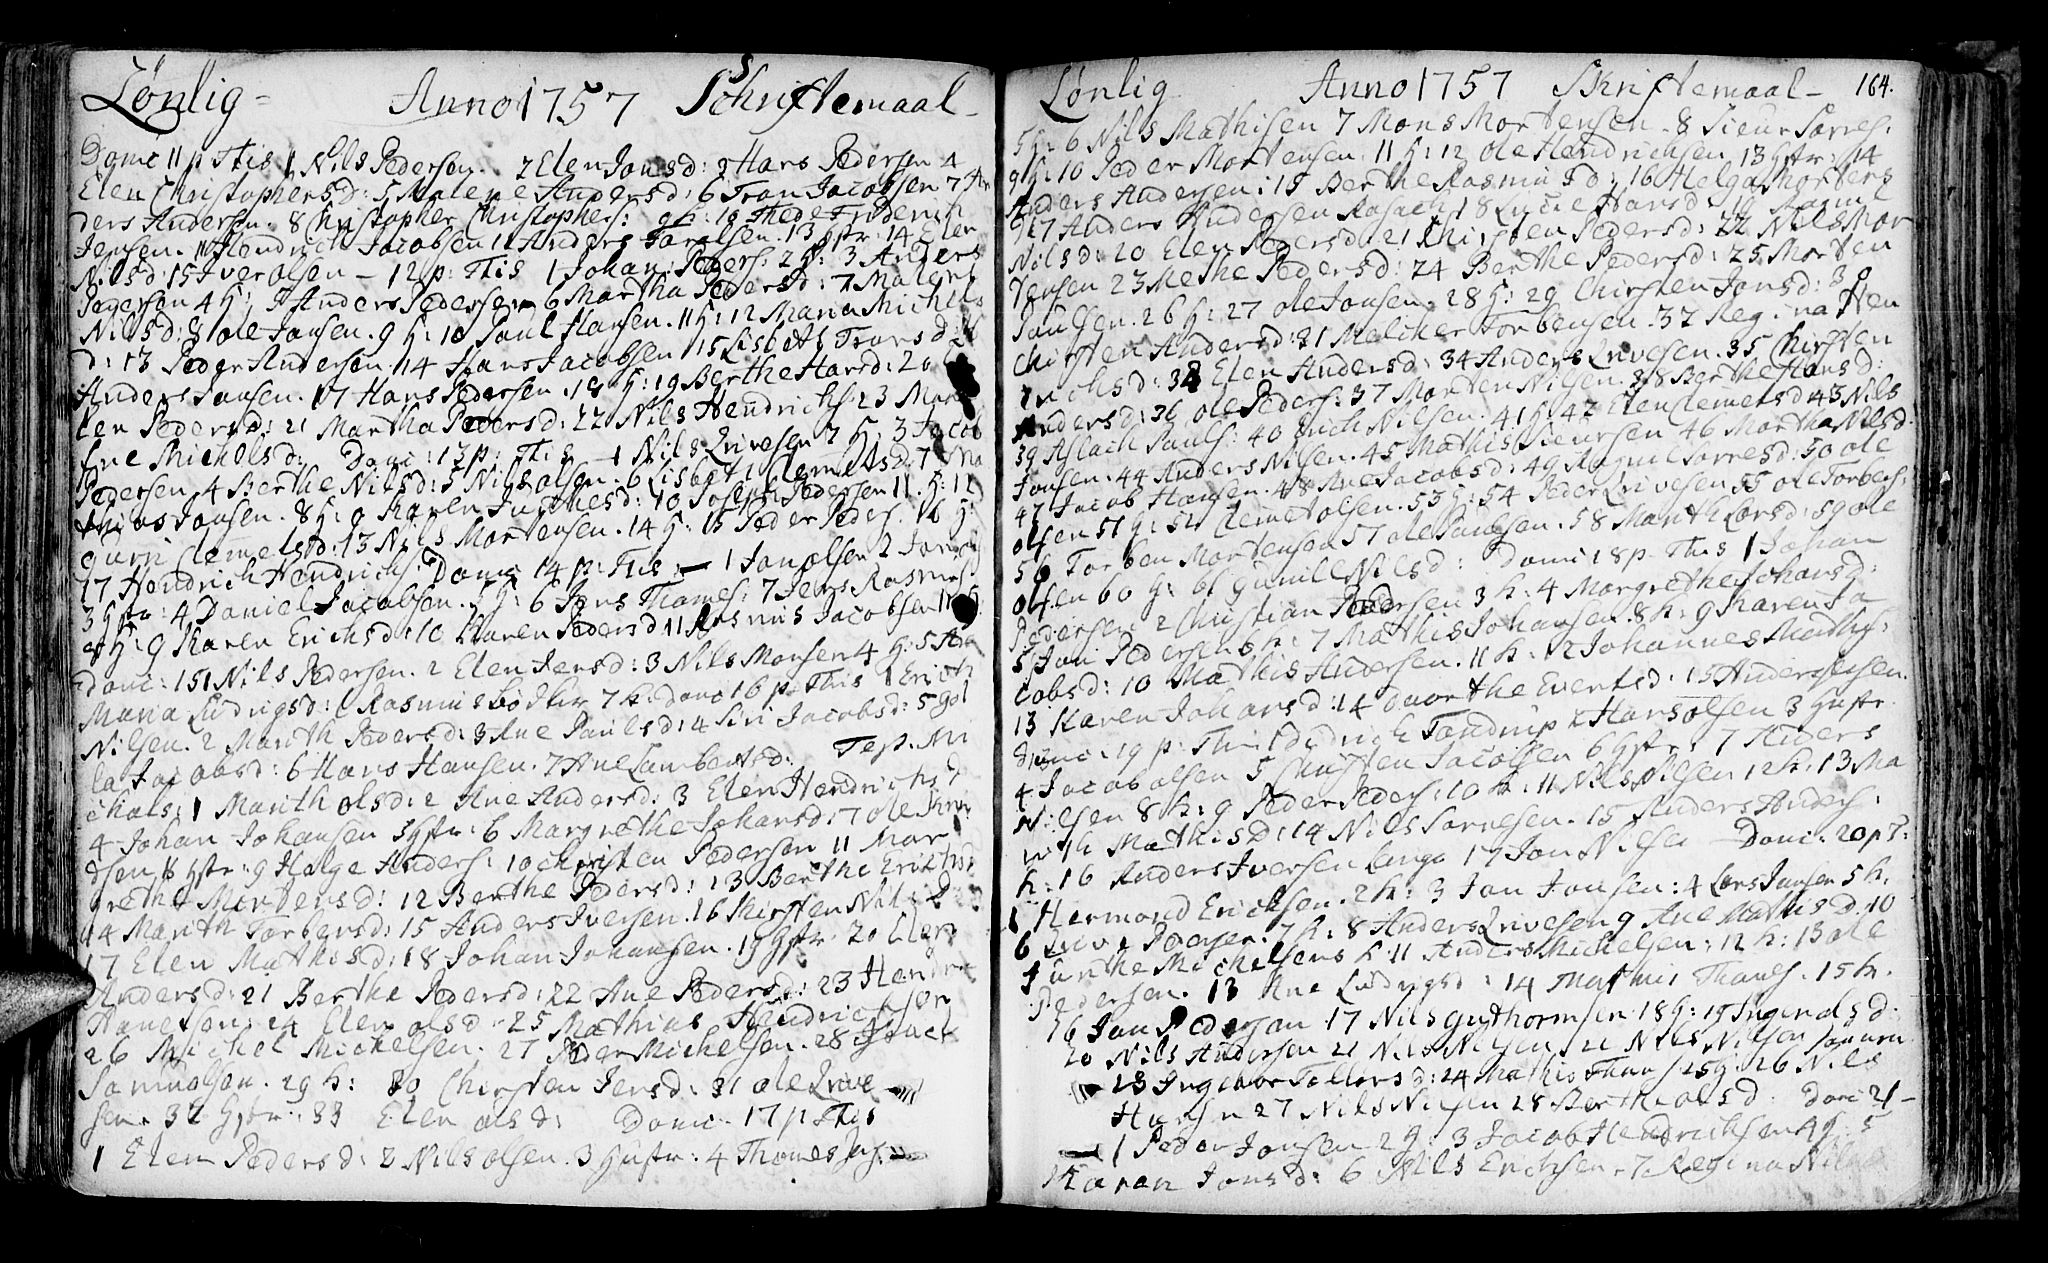 Lønlig = Anno 1757 Schriftemaal -
Domc 11 p. Ttis 1 Nils Pedersen. 2 Elen Jonsd: 3 Hans Pedersen 4
Elen Christophersd: 5 Malene Andersd: 6 Tron Jacobsen 7 An
ders Andersen. 8 Christopher Christophers: 9 k: 10 Thede Friderich
Jensen. 11 Hendrich Jacobsen 12 Anders Torelsen. 13 Hstr: 14 Elen
Nilsd: 15 Iver Olsen - 12 p: Ttis 1 Johan Peders: 2 H: 3 Anders
Pedersen 4 H: 5 Anders Pedersen 6 Martha Pedersd: 7 Malene
Nilsd: 8 Ole Jonsen. 9 H: 10 Paul Hansen. 11 H: 12 Maria Michels
d: 13 Peder Andersen. 14 Hans Jacobsen 15 Lisbeth Tronsd: 16
Anders Jonsen. 17 Hans Pedersen. 18 H: 19 Berthe Hansd: 20
len Pedersd: 21 Martha Pedersd: 22 Nils Hendrichs: 23 Mar
Ane Michelsd: Domc: 13 p: Ttis - 1 Nils Qvivesen 2 H: 3 Jacob
Pedersen 4 Berthe Nilsd: 5 Nils Olsen. 6 Lisbet Clemetsd: 7 Ma
thias Jonsen. 8 H: 9 Karen Justhesd: 10 Joseph Pedersen 11. H: 12
Gurri Clemetsd: 13 Nils Mortensen. 14 H: 15 Peder Peders. 16 H:
17 Hendrich Hendrichs: Domc: 14 p: Ttis: - 1 Jon Olsen 2 Jon
3 Hstr: 4 Daniel Jacobsen. 5 H: 6 Jens Thomes: 7 Jens Rasmus.
8 H: 9 Karen Erichsd: 10 Karen Pedersd 11 Rasmus Jacobsen 12
Domc: 15 1 Nils Pedersen. 2 Elen Jensd: 3 Nils Monsen 4 H: 5 An
Maria Ludvigsd: 6 Rasmus Bødker 7 k. Domc 16 p. Ttis 1 Erich
Nilsen. 2 Marith Pedersd: 3 Ane Paulsd: 4 Siri Jacobsd: 5 Gol
la Jacobsd: 6 Hans Hansen. 7 Ane Lambertsd. Fest. Mi
chals: 1 Marith Olsd: 2 Ane Andersd: 3 Elen Hendrichsd
4 Johan Johansen 5 Hstr: 6 Margrethe Johansd: 7 Ole Jver
dsen 8 Hstr: 9 Helge Anders: 10 Christen Pedersen 11 Mar
grethe Mortensd: 12 Berthe Pedersd: 13 Berthe Erichsd
14 Marith Torbensd: 15 Anders Iversen. 16 Kirsten Nilsd
17 Elen Mathisd: 18 Johan Johansen. 19 Hstr 20 Elen
Andersd: 21 Berthe Pedersd: 22 Ane Pedersd: 23 Hendr
Hanesen. 24 Elen Olsd. 25 Mathias Hendrichsen
26 Michel Michelsen. 27 Peder Michelsen. 28 Isack
Samuelsen. 29 k: 30 Chirsten Jensd: 31 Ole Qvive
sen. 32 Hstr: 33 Elen Olsd: Domc. 17 p. Ttis
1 Elen Pedersd: 2 Nils Olsen. 3 Hustr: 4 Thomes
Lønlig Anno 1757 Skriftemaal - 164.
5 H: 6 Nils Mathisen 7 Mons Mortensen. 8 Sieur Sorres:
9 H: 10 Peder Mortensen. 11 H: 12 Ole Hendrichsen 13 Hstr: 14
Anders Andersen: 15 Berthe Rasmusd: 16 Helga Mortens
17 Anders Andersen Rosach 18 Lucie Hansd 19
Nilsd: 20 Elen Pedersd: 21 Chirsten Pedersd: 22 Nils Mor
tensen 23 Methe Pedersd: 24 Berthe Pedersd: 25 Morten
Paulsen. 26 H: 27 Ole Jonsen. 28 H: 29 Chirsten Jonsd: 30
Chirsten Andersd: 31 Melcher Torbensen. 32 Regina Hen
richsd: 33 Elen Andersd: 34 Anders Qvivesen. 35 Chirsten
Andersd: 36 Ole Peders: 37 Morten Nilsen. 38 Berthe Hansd:
39 Aslach Pauls: 40 Erich Nilsen. 41 H 42 Elen Clemetsd 43 Nils
Jonsen. 44 Anders Nilsen. 45 Mathis Sieursen 46 Martha Nilsd.
47 Jacob Hansen. 48 Ane Jacobsd: 49 Ragnil Sorresd: 50 Ole
Olsen 51 H: 52 Clemet Olsen. 53 H: 54 Peder Qvivesen 55 Ole Torbens:
56 Torben Mortensen 57 Ole Paulsen. 58 Marith Larsd: 59 Ole
Olsen 60 H: 61 Gunil Nilsd: Domc 18 p. Ttis 1 Johan
Pedersen: 2 Christian Pedersen 3 k: 4 Margrethe Johansd:
5 Jon Pedersen 6 k: 7 Mathis Johansen. 8 k: 9 Karen Ja
cobsd: 10 Mathis Andersen. 11 k: 12 Johannes Mathis:
13 Karen Johansd: 14 Daarthe Evertsd: 15 Anders
Domc: 19 p: Ttis 1 Didrich Tandrup 2 Hans Olsen 3 Hustr.
4 Jacob Olsen 5 Christen Jacobsen 6 Hstr: 7 Anders
Nilsen 8 k: 9 Peder Peders: 10 k: 11 Nils Nilsen 12 k: 13 Ma
rith Mathisd: 14 Nils Sorresen. 15 Anders Anders:
k: 16 Anders Iversen Lango 17 Jon Nilsen Domc: 20 p T:
1 Hermond Erichsen. 2 k: 3 Jon Jonsen: 4 Lars Jansen 5 k.
6 Qvive Iversen. 7 k: 8 Anders Qvivesen 9 Ane Mathisd. 10
Michelsens k: 11 Anders Michelsen: 12 k: 13 Ole
Pedersen. 13 Ane Ludvigsd: 14 Mathis Thomes. 15 k.
16 Jon Pedersen 17 Nils Guthormsen 18 H: 19 Ingeri Olsd:
20 Nils Andersen 21 Nils Nilsen 22 Nils Nilsen
23 Ingebor Tollersd: 24 Mathis Thoms 25 H: 26 Nils
Hansen 27 Nils Nilsen 28 Berthe Olsd. Domc 21 -
1 Peder Jonsen 2 H: 3 Jacob Hendrichsen 4 H: 5
Karen Jonsd: 6 Nils Erichsen. 7 Regina Nils